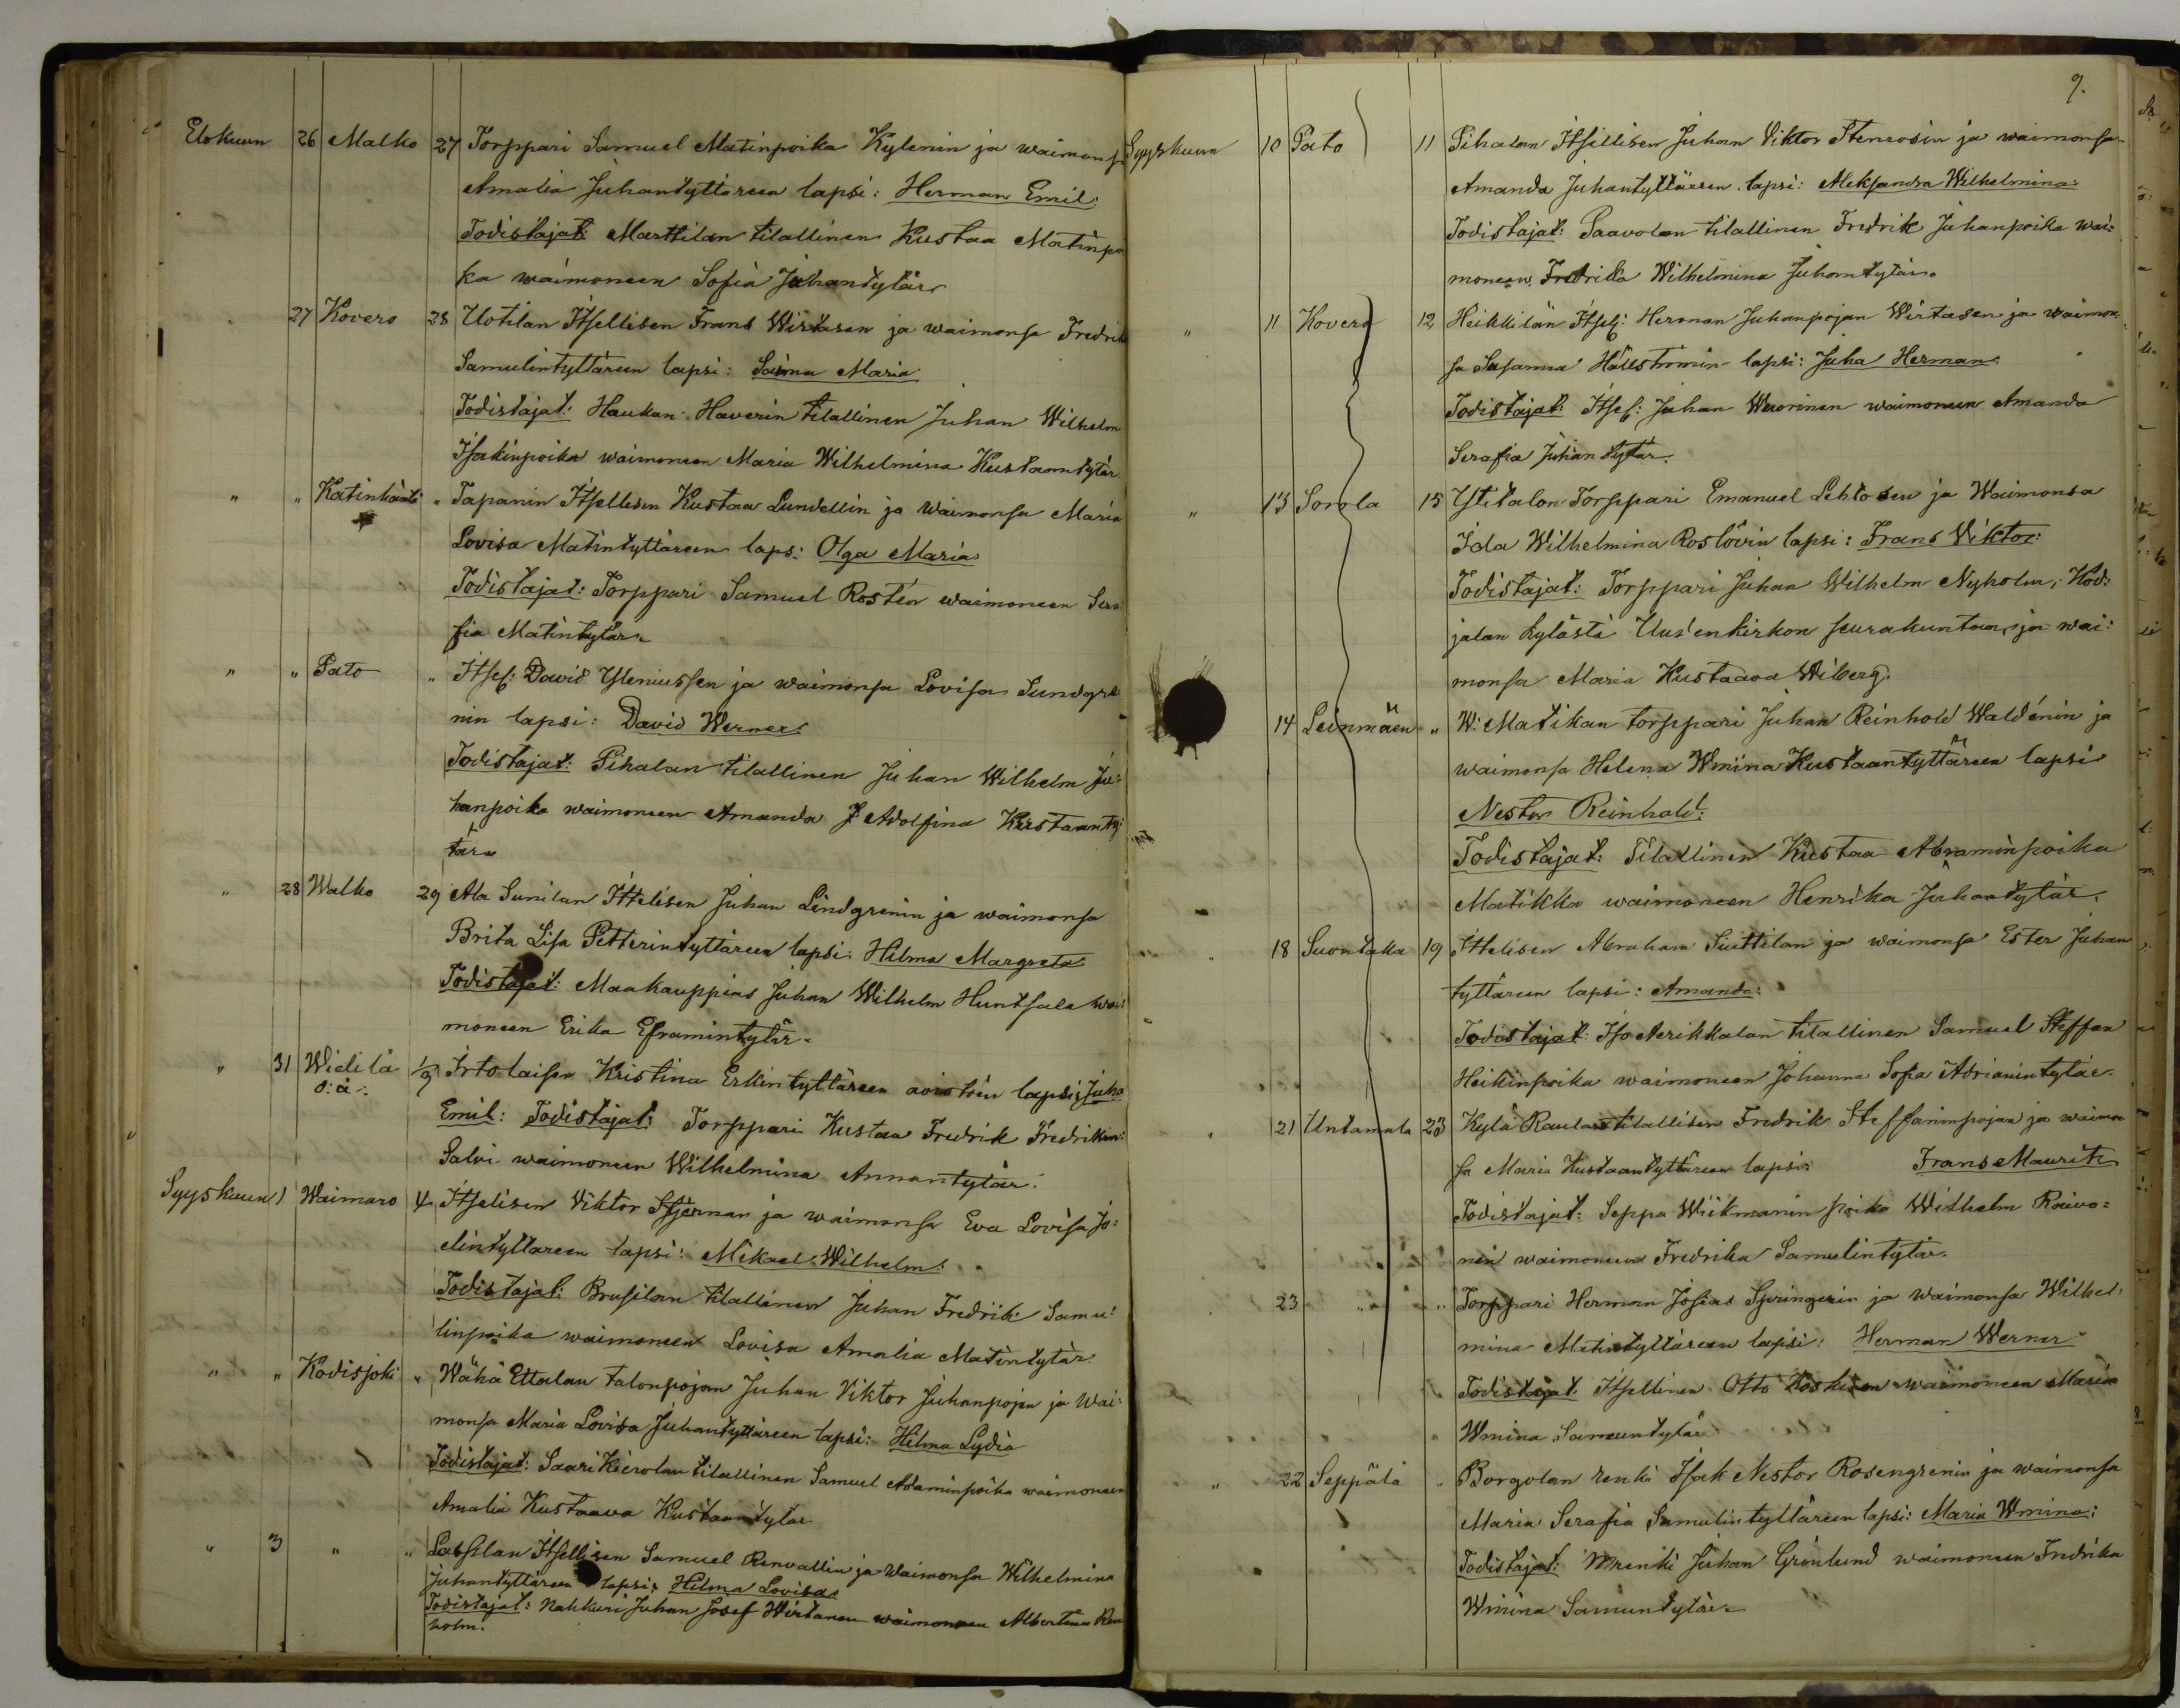 Elokuun 26 Malko 27 Torppari Samuel Matinpoika Kylenin ja waimonsa
Amalia Juhantyttäreen lapsi: Herman Emil:
Todistajat: Marttilan tilallinen Kustaa Matinpo
ka waimoneen Sofia Juhantytär
27 Kovero 28 Uotilan Itsellisen Frans Wirtasen ja waimonsa Fredrik
Samulintyttäreen lapsi: Saima Maria
Todistajat: Haukan-Haverin tilallinen Juhan Wilhelm
Isakinpoika waimoneen Maria Wilhelmina Kustaantytär
" " Katinhäntä " Tapanin Itsellisen Kustaa Lundellin ja waimonsa Maria
Lovisa Matintyttäreen laps: Olga Maria
Todistajat: Torppari Samuel Rosten waimoneen Sera
fia Matintytär
" " Pato " Itsel: David Yleniussen ja waimonsa Lovisa Sundgre
nin lapsi: David Werner:
Todistajat: Pihalan tilallinen Juhan Wilhelm Ju:
hanpoika waimoneen Amanda Adolfina Kustaanty
tär
" 28 Walko 29 Ala Sunilan Ittelisen Juhan Lindgrenin ja waimonsa
Brita Lisa Petterintyttäreen lapsi: Hilma Margreta
Todistajat: Maakauppias Juhan Wilhelm Huntsala wai:
moneen Erika Eframintytär.
" 31 Widilä 1/9 Irtolaisen Kristina Erkintyttäreen aviotoin lapsi; Juho
o: ä:
Emil: Todistajat: Torppari Kustaa Fredrik Fredrikin:
Salvi waimoneen Wilhelmina Annantytär.
Syyskuun 1 Waimaro 4 Itselisen Viktor Stjernan ja waimonsa Eva Lovisa Jo:
elintyttareen lapsi: Mikael Wilhelm:
Todistajat: Brusilan tilallinen Juhan Fredrik Samu:
linpoika waimoneen Lovisa Amalia Matintytär.
" " Kodisjoki " Wähä Ettalan talonpojan Juhan Viktor Juhanpojan ja Wai:
monsa Maria Lovisa Juhantyttäreen lapsi: Hilma Lydia
Todistajat: Saari Kierolan tilallinen Samuel Adaminpoika waimoneen
Amalia Kustaava Kustaantytar
" 3 " " Lassilan Itsellisen Samuel Renvallin ja Waimonsa Wilhelmina
Juhantyttäreen lapsi: Hilma Lovisa
Todistajat: Nahkuri Juhan Josef Wirtanen waimoneen Albertina Ren
holm.
9.
Syyskuun 10 Pato 11 Pihalan Itsillisen Juhan Viktor Stenrosin ja waimonsa
Amanda Juhantyttäreen lapsi: Aleksandra Wilhelmina:
Todistajat: Paavolan tilallinen Fredrik Juhanpoika wai:
moneen Fredrika Wilhelmina Juhantytär.
" 11 Kovero 12 Heikkilän Itsel: Herman Juhanpojan Wirtasen ja waimon
sa Susanna Hällströmin lapsi: Juha Herman:
Todistajat: Itsel: Juhan Wuorinen waimoneen Amanda
Serafia Juhantytär.
" 13 Sorola 15 Ylitalon Torppari Emanuel Lehtosen ja Waimonsa
Ida Wilhelmina Roslövin lapsi: Frans Viktor:
Todistajat: Torppari Juhan Wilhelm Nyholm, Kod:
jalan kylästä Uudenkirkon seurakuntaa, ja wai:
monsa Maria Kustaava Wiberg.
14 Leinmäen " W: Matikan torppari Juhan Reinhold Waldénin ja
waimonsa Helena Wmina Kustaantyttäreen lapsi
Nestor Reinhold:
Todistajat: Tilallinen Kustaa Abraminpoika
Matikka waimoneen Henrika Juhantytär.
18 Suontaka 19 Ittelisen Abraham Siuttilan ja waimonsa Ester Juhan
tyttäreen lapsi: Amanda:
Todistajat: Iso Aerikkalan tilallinen Samuel Steffan
Heikinpoika waimoneen Johanna Sofia Adrianintytär.
21 Untamala 23 Kylä Raulan tilallisen Fredrik Steffaninpojan ja waimon
sa Maria Kustaantyttäreen lapsi: Frans Maurits
Todistajat: Seppä Wiikmanin poika Wilhelm Raivo=
nen waimoneen Fredrika Samulintytär
23 " " Torppari Herman Josias Springerin ja waimonsa Wilhel:
mina Matintyttäreen lapsi: Herman Werner
Todistajat: Itsellinen Otto Koskinen waimoneen Maria
Wmina Samuntytär
" 22 Seppälä " Borgolan renki Isak Nestor Rosengrenin ja waimonsa
Maria Serafia Samulintyttäreen lapsi: Maria Wmina:
Todistajat: Juhan Grönlund waimoneen Fredrika
Wmina Samuntytär